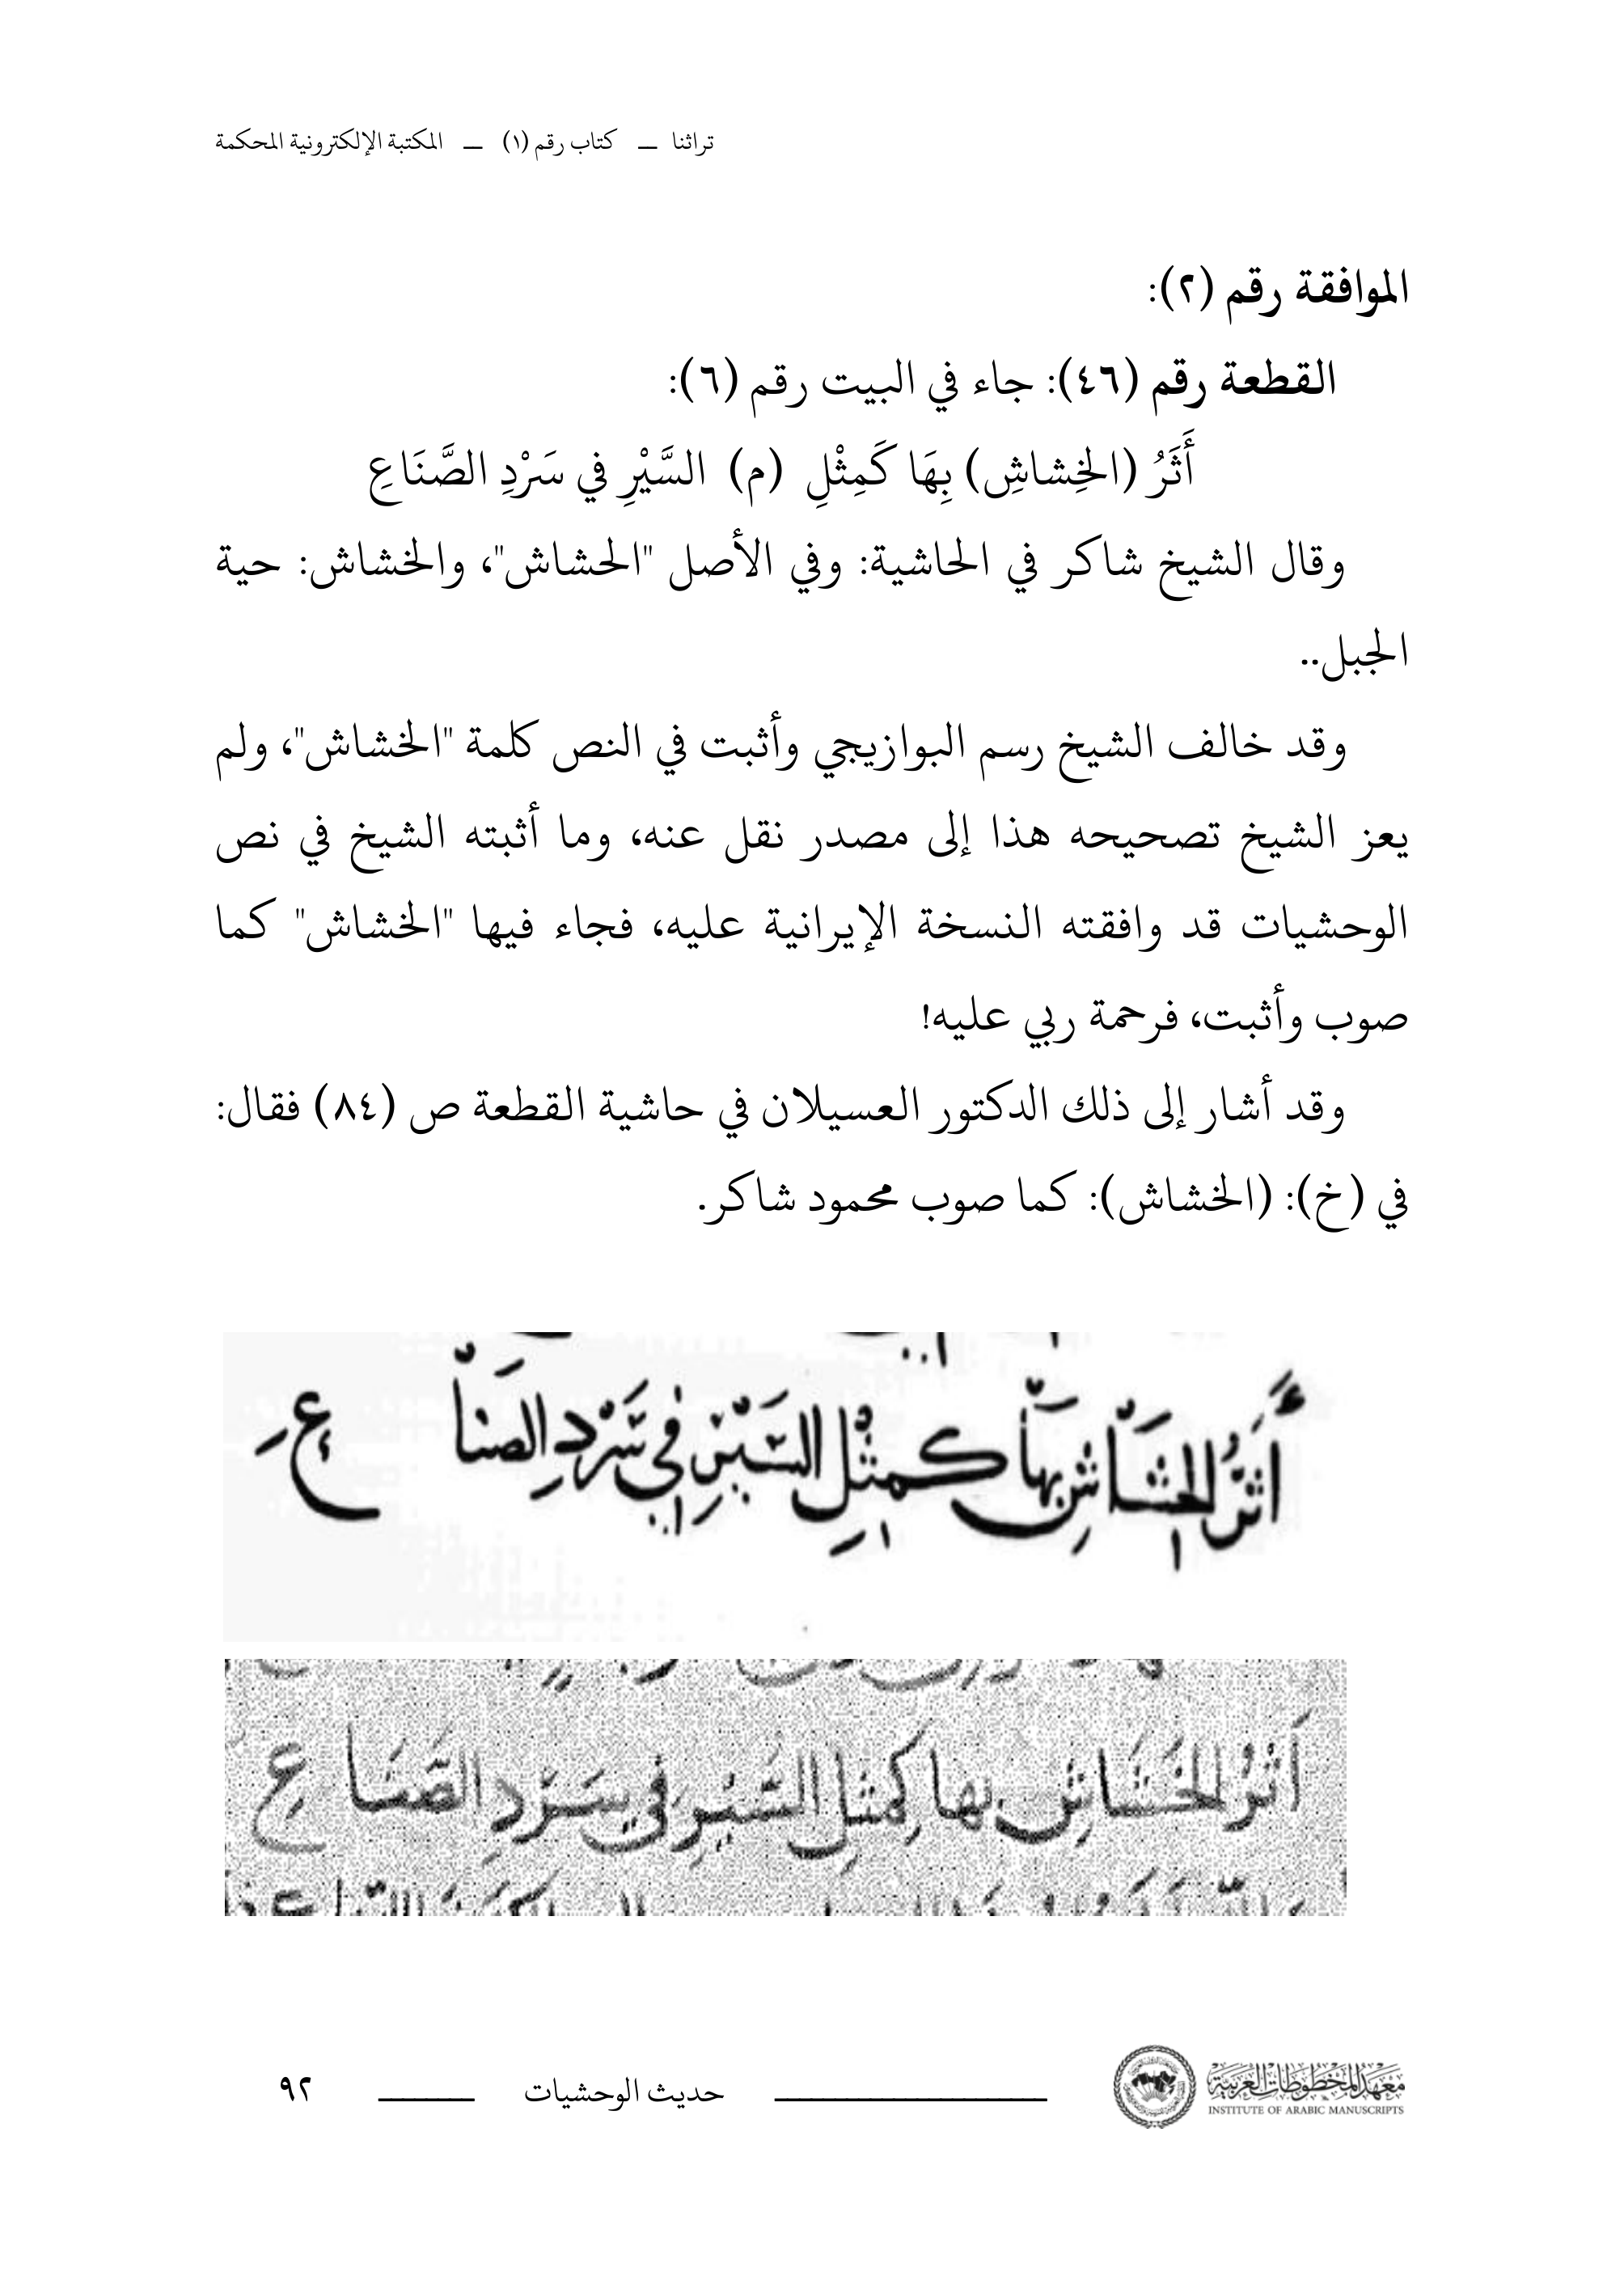 تراثنا — كتاب رقم (١) — المكتبة الإلكترونية المحكمة
الموافقة رقم (٢):
القطعة رقم (٤٦): جاء في البيت رقم (٦):
أَثَرُ (الخِشاشِ) بِهَا كَمِثْلِ (م) السَّيْرِ في سَرْدِ الصَّنَاعِ
وقال الشيخ شاكر في الحاشية: وفي الأصل "الحشاش"، والخشاش: حية
الجبل..
وقد خالف الشيخ رسم البوازيجي وأثبت في النص كلمة "الخشاش"، ولم
يعز الشيخ تصحيحه هذا إلى مصدر نقل عنه، وما أثبته الشيخ في نص
الوحشيات قد وافقته النسخة الإيرانية عليه، فجاء فيها "الخشاش" كما
صوب وأثبت، فرحمة ربي عليه!
وقد أشار إلى ذلك الدكتور العسيلان في حاشية القطعة ص (٨٤) فقال:
في (خ): (الخشاش): كما صوب محمود شاكر.
أَثَرُ الحِشَاشِ بهَا كمِثْلِ السَّيْرِ في سَرْدِ الصَنَاعِ
أَثَرُ الخَشَاشِ بها كمِثلِ السَّيْرِ في سَرْدِ الصَّنَاعِ
معهد المخطوطات العربية
INSTITUTE OF ARABIC MANUSCRIPTS
حديث الوحشيات
٩٢